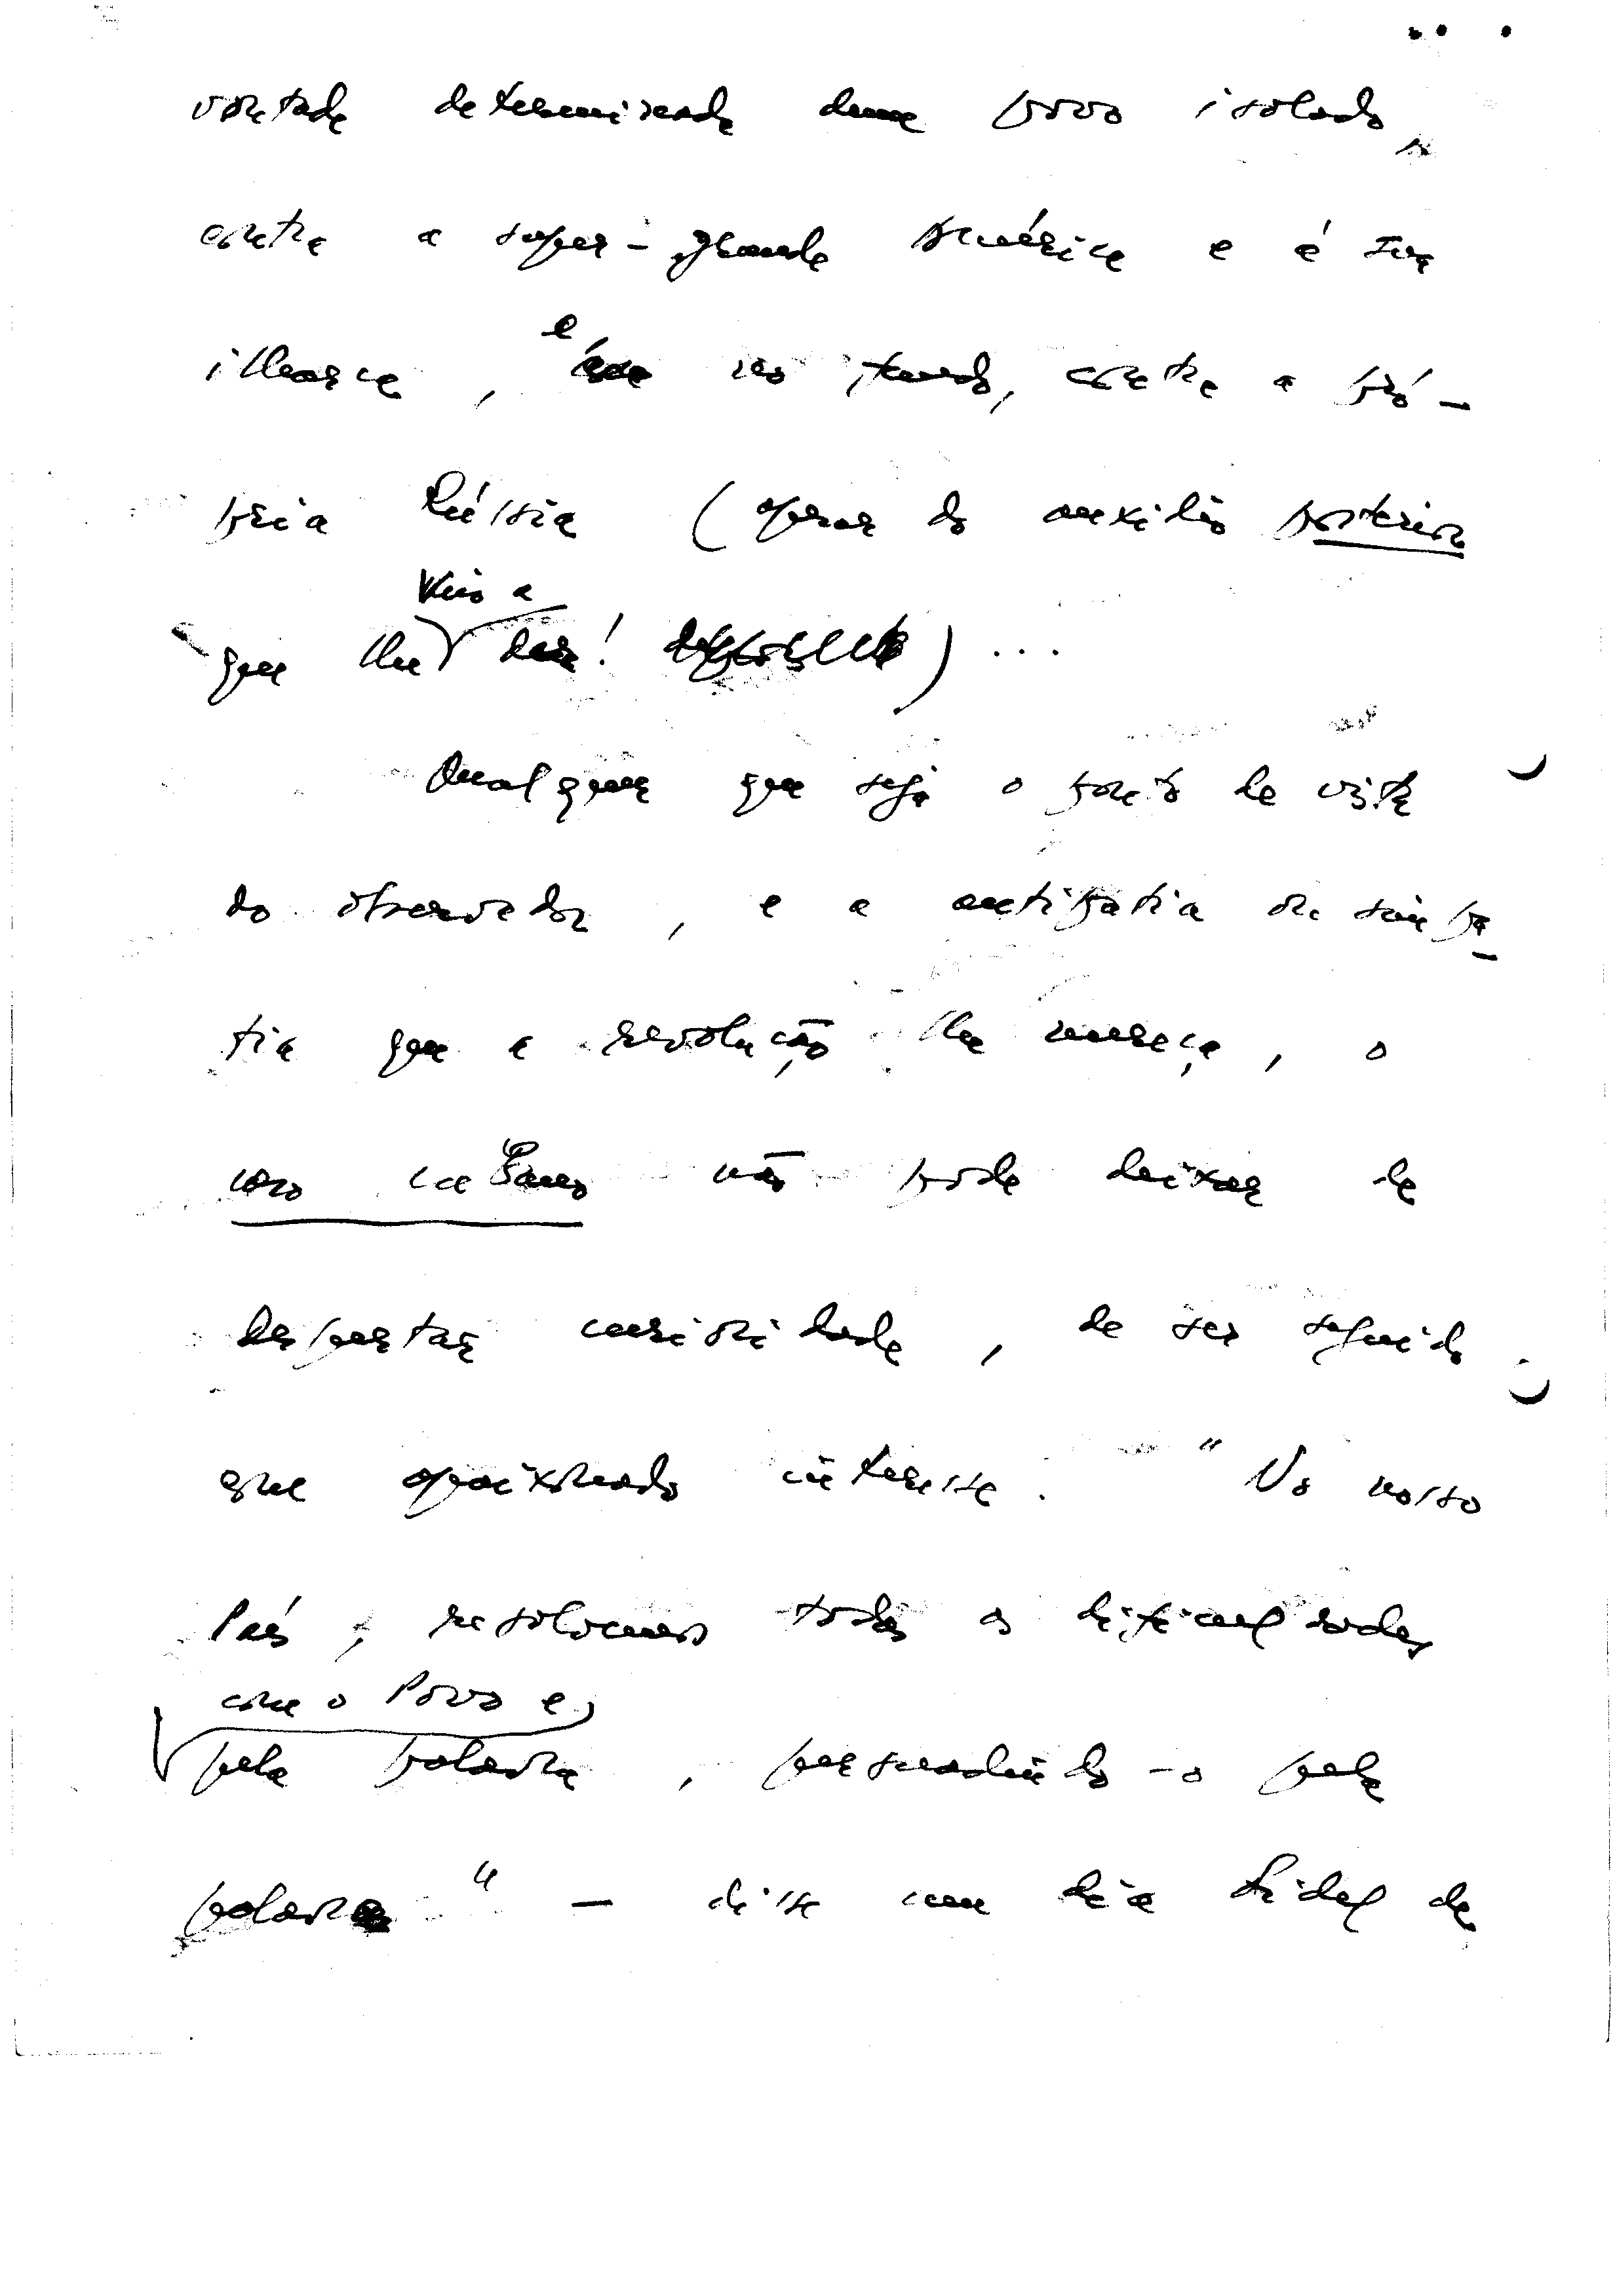 vontade determinada dum povo isolado,
contra a super-grande América e é sua
ilharga, e no fundo, contra a pró-
pria Rússia (apesar do auxílio posterior
veio a
que lhe dar! )...
Qualquer que seja o ponto de vista
do observador, e a antipatia ou simpa-
tia que a revolução lhe mereça, o
caso cubano não pode deixar de
despertar curiosidade, de ser seguido
com apaixonado interesse. "No nosso
País, resolvemos todas as dificuldades
com o Povo e
pela palavra, persuadindo-o pela
palavra" — disse um dia Fidel de